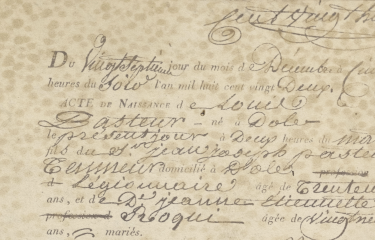 Cent Vingt hu
Du Vingt Septieme jour du mois de Décembre
heures du Soir l'an mil huit cent vingt Deux.
ACTE DE NAISSANCE de Louis
Pasteur né à Dole
le present jour à Deux heures du ma
fils du sr. jean joseph pasteu
Tanneur domicilié à Dole
Légionnaire âgé de Trente
ans, et de De. jeanne Etiennette
profession d Roqui âgée de Vingt ne
ans, mariés.